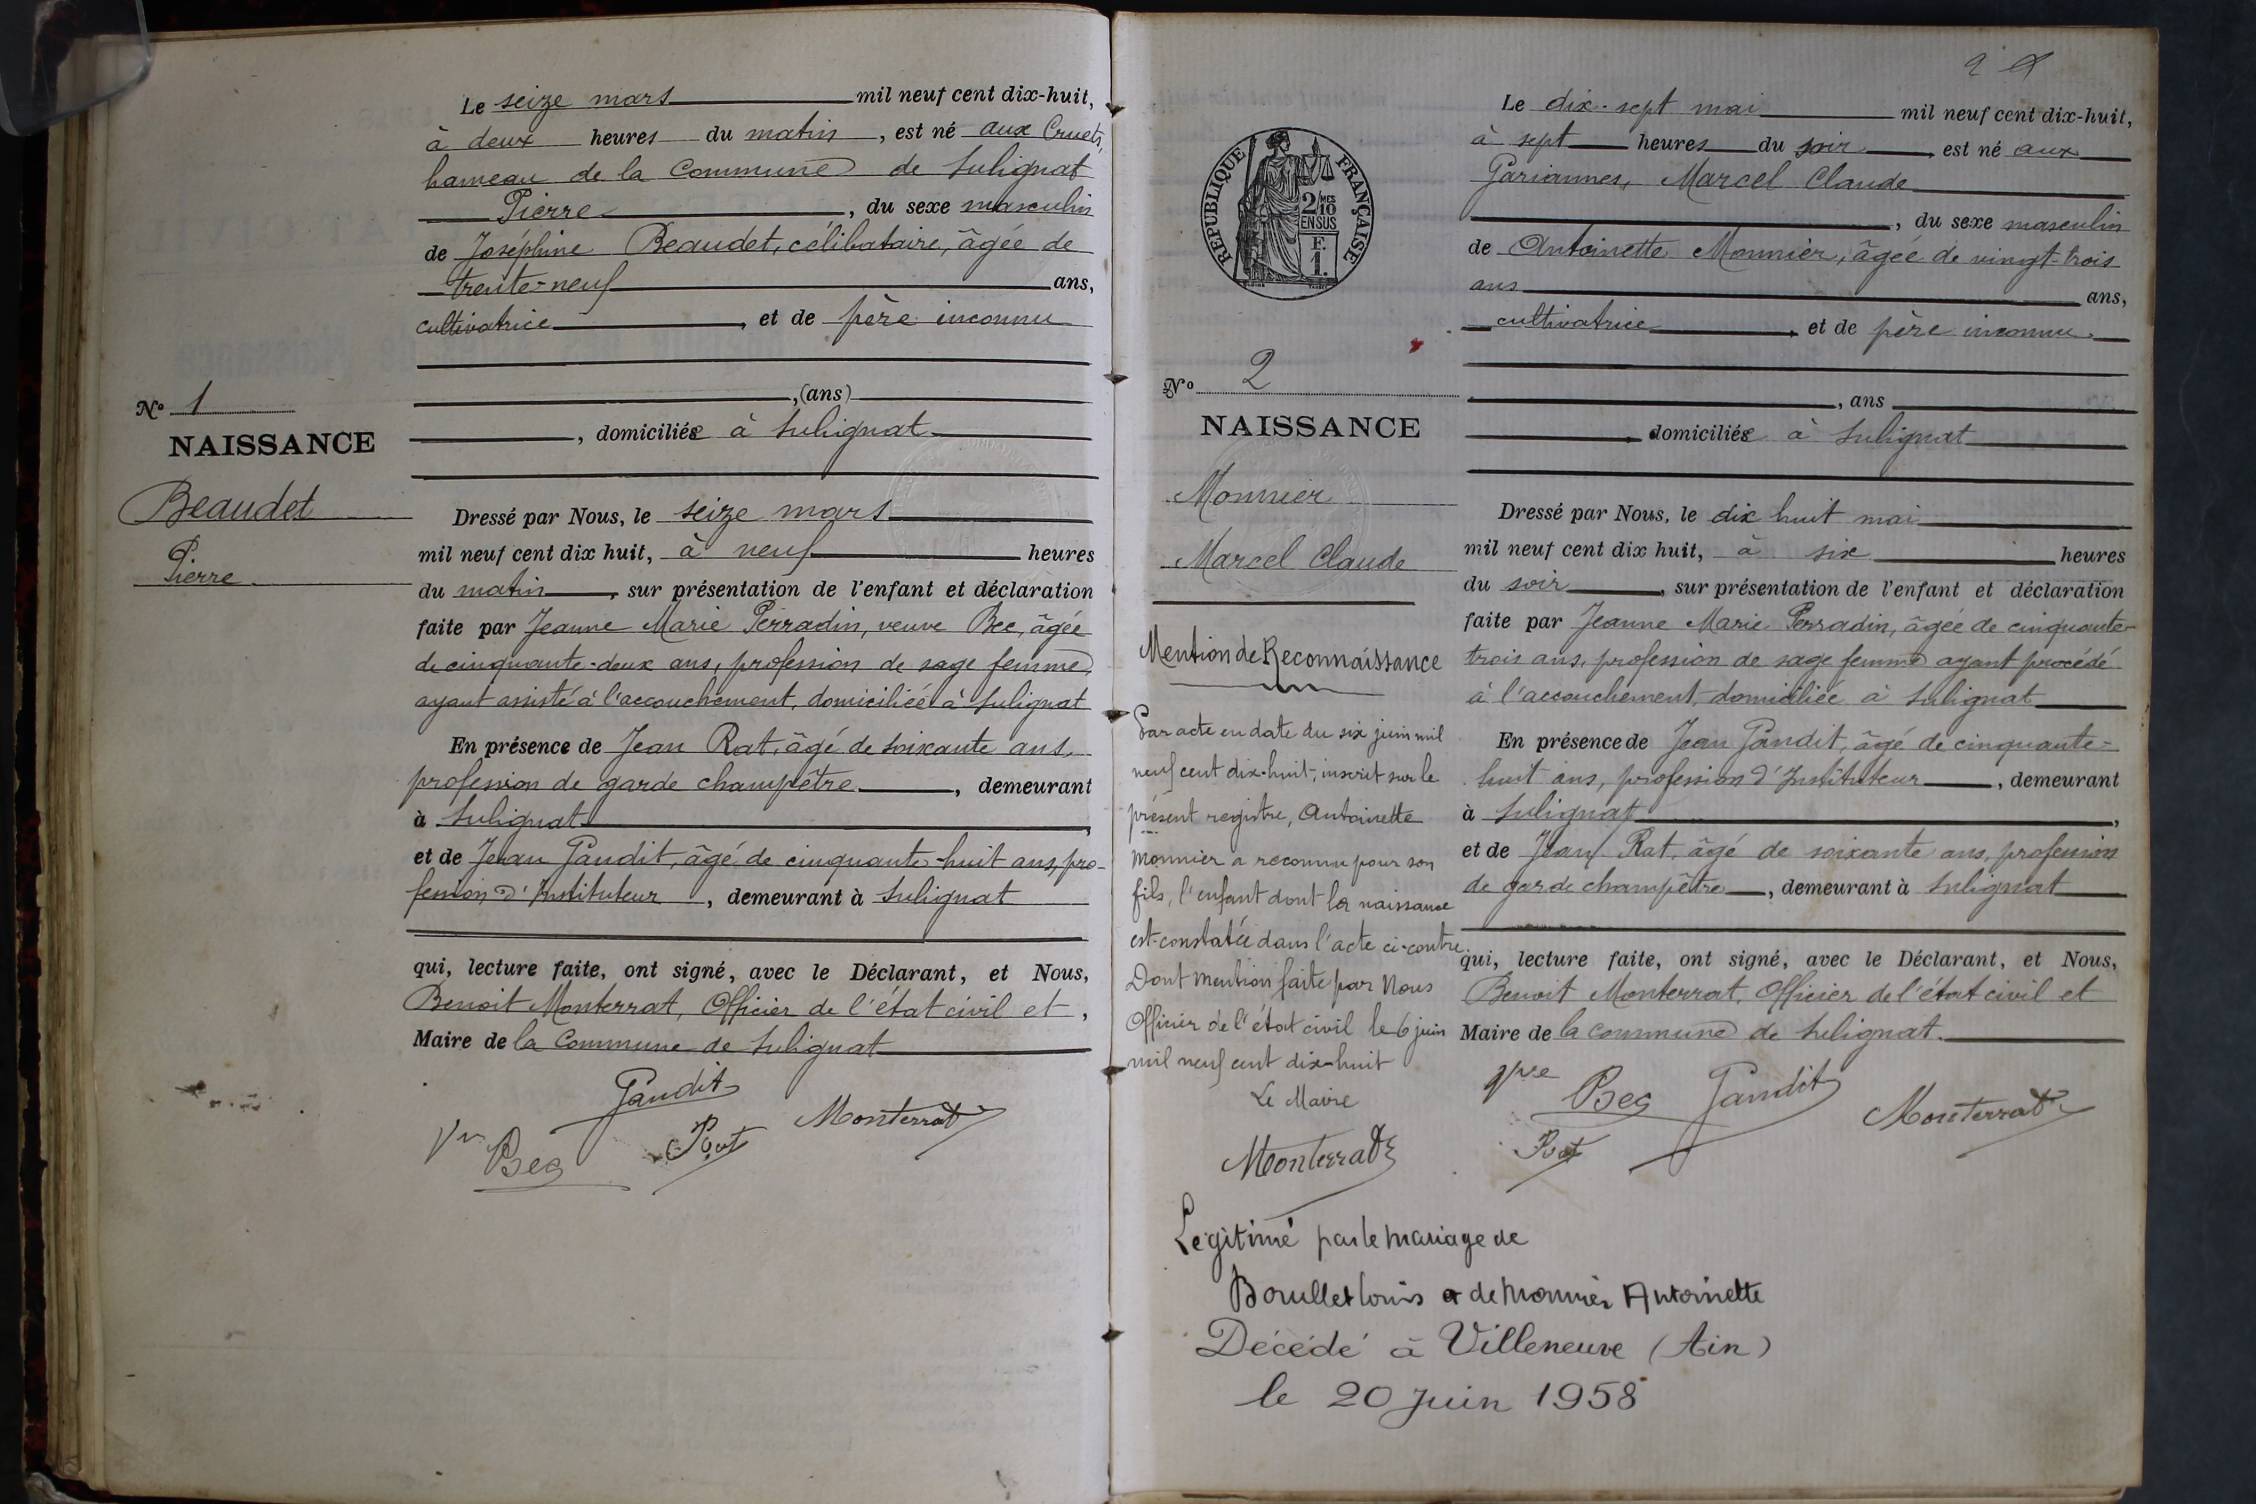 Le seize mars mil neuf cent dix-huit,
à deux heures du matin, est né aux Cruets,
hameau de la Commune de Sulignat
Pierre, du sexe masculin
de Joséphine Beaudet, célibataire, âgée de
trente-neuf ans,
cultivatrice, et de père inconnu
, (ans)
, domiciliée à Sulignat
Nº 1
NAISSANCE
Beaudet
Pierre
Dressé par Nous, le seize mars
mil neuf cent dix huit, à neuf heures
du matin, sur présentation de l'enfant et déclaration
faite par Jeanne Marie Perradin, veuve Bec, âgée
de cinquante-deux ans, profession de sage femme
ayant assisté à l'accouchement, domiciliée à Sulignat
En présence de Jean Rat, âgé de soixante ans,
profession de garde champêtre, demeurant
à Sulignat,
et de Jean Gandit, âgé de cinquante-huit ans, pro-
fession d'Instituteur, demeurant à Sulignat
qui, lecture faite, ont signé, avec le Déclarant, et Nous,
Benoit Monterrat, Officier de l'état civil et,
Maire de la Commune de Sulignat
Gandit
Vve Bec Rat Monterrat
2
REPUBLIQUE FRANÇAISE
2/10
MES
EN SUS
F.
1.
Nº 2
NAISSANCE
Monnier
Marcel Claude
Mention de Reconnaissance
Par acte en date du six juin mil
neuf cent dix-huit, inscrit sur le
présent registre, Antoinette
Monnier a reconnu pour son
fils, l'enfant dont la naissance
est constatée dans l'acte ci-contre.
Dont mention faite par Nous
Officier de l'état civil le 6 juin
mil neuf cent dix-huit
Le Maire
Monterrat
Le dix-sept mai mil neuf cent dix-huit,
à sept heures du soir, est né aux
Gariannes, Marcel Claude
, du sexe masculin
de Antoinette Monnier, âgée de vingt-trois
ans ans,
cultivatrice, et de père inconnu.
, ans
, domiciliée à Sulignat
Dressé par Nous, le dix huit mai
mil neuf cent dix huit, à six heures
du soir, sur présentation de l'enfant et déclaration
faite par Jeanne Marie Perradin, âgée de cinquante-
trois ans, profession de sage femme ayant procédé
à l'accouchement, domiciliée à Sulignat
En présence de Jean Gandit, âgé de cinquante-
huit ans, profession d'Instituteur, demeurant
à Sulignat,
et de Jean Rat, âgé de soixante ans, profession
de garde champêtre, demeurant à Sulignat
qui, lecture faite, ont signé, avec le Déclarant, et Nous,
Benoit Monterrat, Officier de l'état civil et
Maire de la commune de Sulignat.
Vve Bec Gandit Monterrat
Rat
Légitimé par le mariage de
Boullet Louis et de Monnier Antoinette
Décédé à Villeneuve (Ain)
le 20 Juin 1958